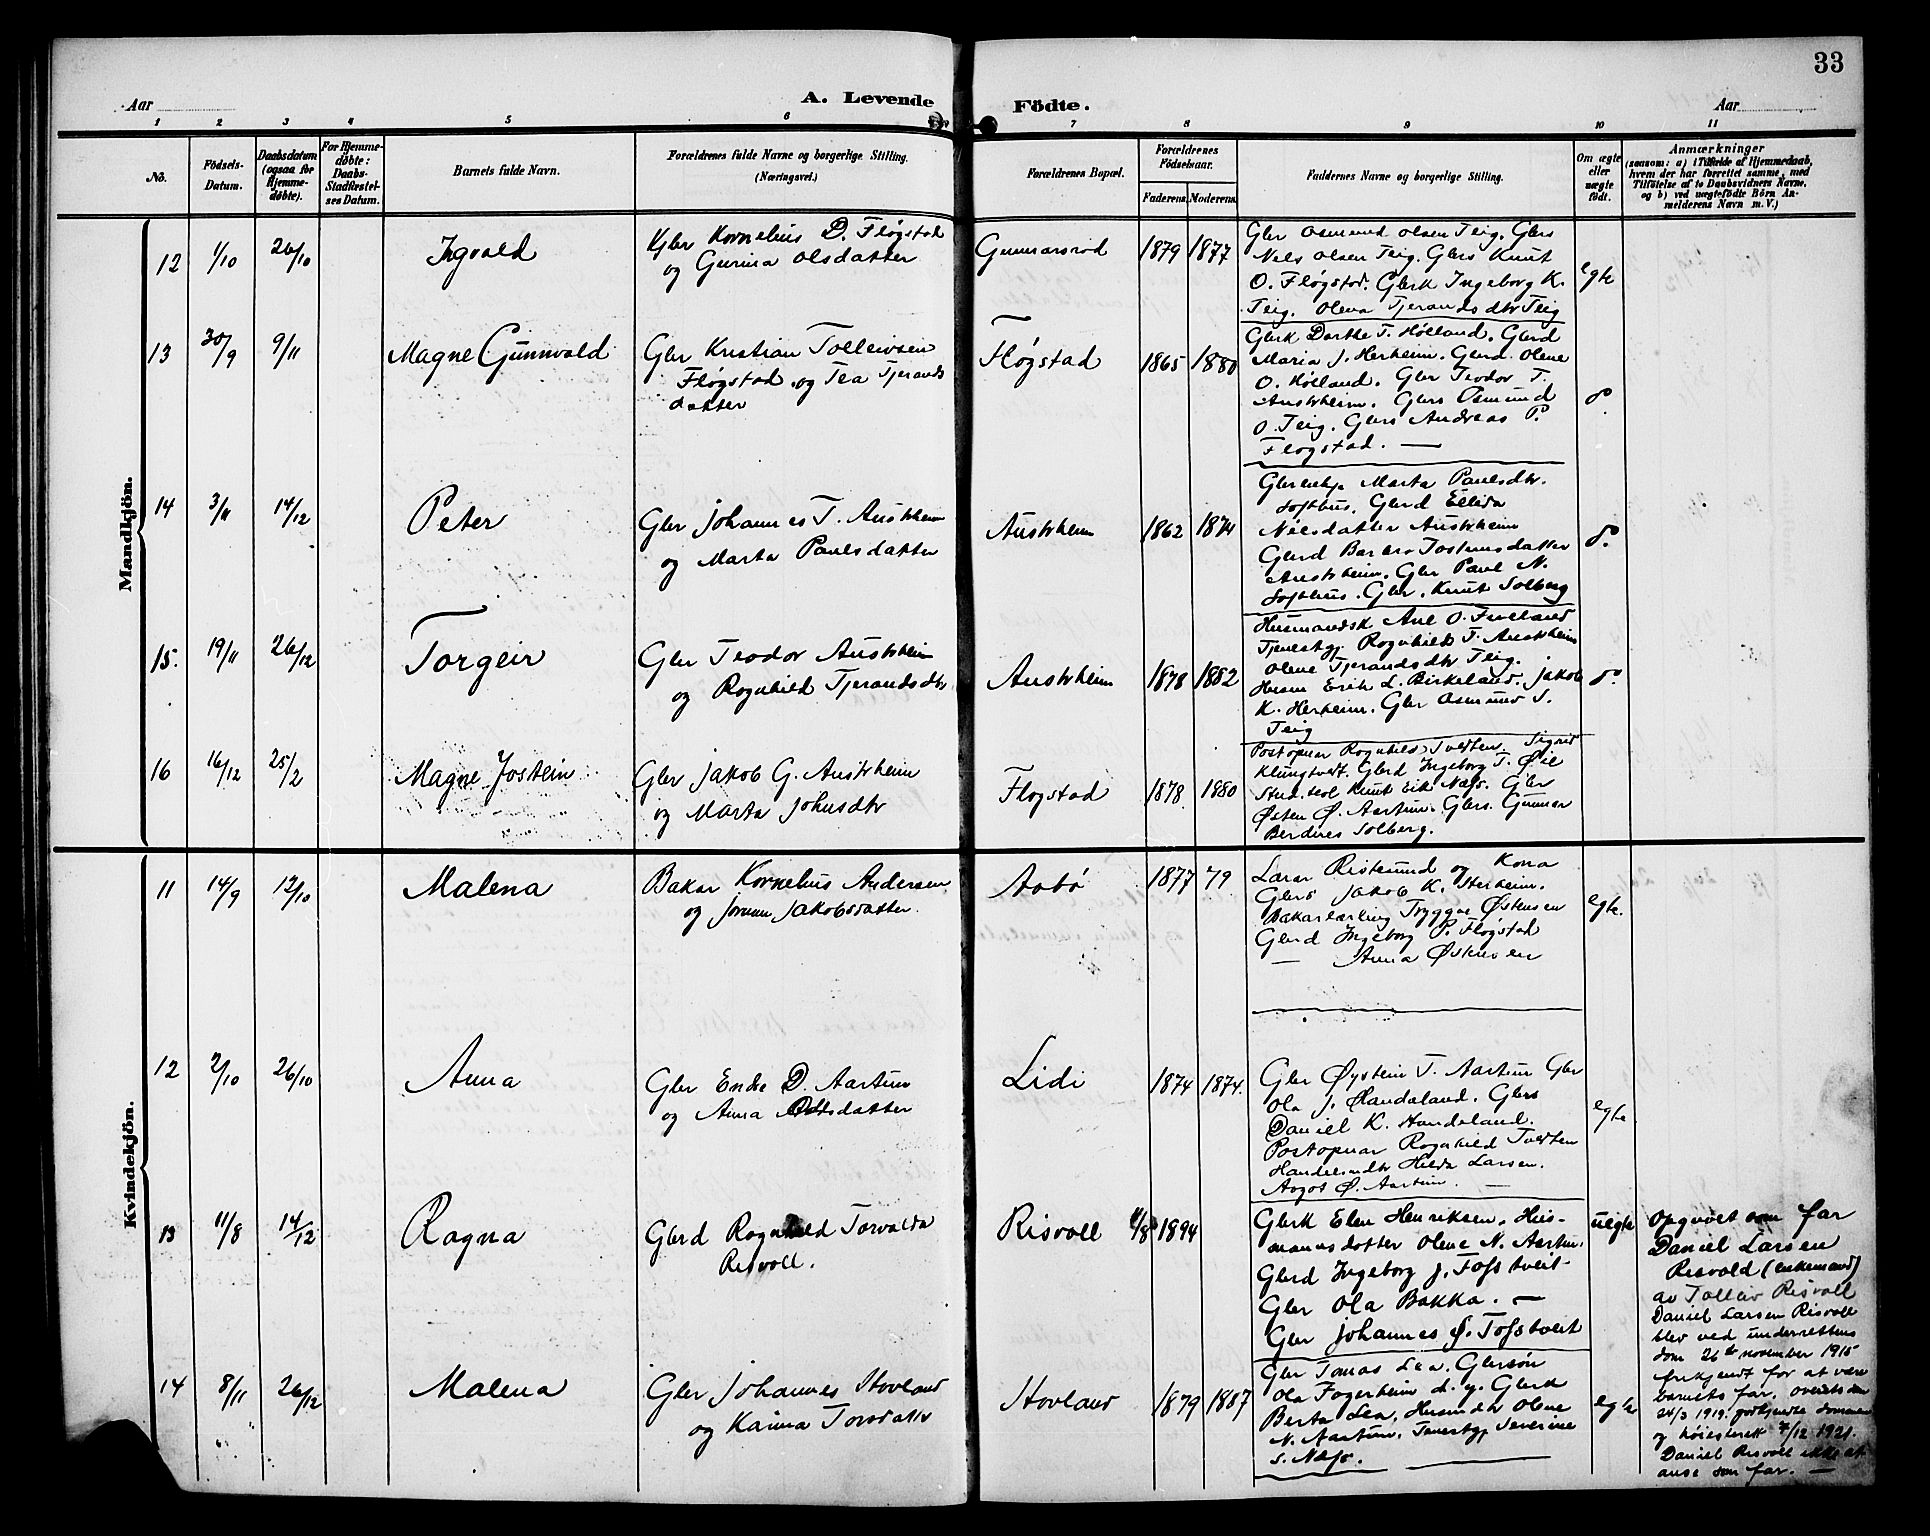 33
Aar
A. Levende Födte.
Aar
1 2 3 4 5 6 7 8 9 10 11
No.
Födsels-
Datum.
Daabsdatum
(ogsaa for
Hjemme-
døbte).
For Hjemme-
døbte:
Daabs-
Stadfæstel-
ses Datum.
Barnets fulde Navn.
Forældrenes fulde Navne og borgerlige Stilling.
(Næringsvei.)
Forældrenes Bopæl.
Forældrenes
Födselsaar.
Faderens Moderens
Faddernes Navne og borgerlige Stilling.
Om ægte
eller
uægte
født.
Anmærkninger
(saasom: a) i Tilfælde af Hjemmedaab,
hvem der har forrettet samme, med
Tilföielse af to Daabsvidners Navne,
og b) ved uægtefödte Börn An-
melderens Navn m. V.)
Mandkjön.
12 1/10 26/10
Ingvald
Gbr Kornelius D. Fløgstad
og Gurina Olsdatter
Gunnarsrød
1879 1877
Gbr Osmund Olsen Teig. Gbrs
Nels Olsen Teig. Gbrs Knut
O. Fløgstad. Gbrk Ingeborg K.
Teig. Olena Tjerandsdtr Teig
egte
13 30/9 9/11
Magne Gunnvald
Gbr Kristian Tolleivsen
Fløgstad og Tea Tjerands
datter
Fløgstad
1865 1880
Gbrk Dorthe T. Hølland. Gbrd
Maria J. Herheim. Gbrd Olene
O. Hølland. Gbr Teodor T.
Austrheim. Gbrs Osmund
O. Teig. Gbrs Andreas P.
Fløgstad. —
do.
14 3/11 14/12
Peter
Gbr Johannes T. Austrheim
og Marta Paulsdatter
Austrheim
1862 1874
Marta Paulsdtr.
Softhus. Gbrd Ellida
Nilsdatter Austrheim
Gbrd Barbro Jostensdatter
Austrheim. Gbr Paul N.
Softhus. Gbr. Knut Solberg
do.
15. 19/11 26/12
Torgeir
Gbr Teodor Austrheim
og Ragnhild Tjerandsdtr
Austrheim
1878 1882
Husmandsk Ane O. Frøland
Tjenestpj Ragnhild T. Austrheim
Olene Tjerandsdtr Teig.
Husm Erik L. Birkeland. Jakob
K. Herheim. Gbr Osmund S.
Teig
do.
16 16/12 25/2
Magne Jostein
Gbr Jakob G. Austrheim
og Marta Johnsdtr
Fløgstad
1878. 1880
Postopnar Ragnhild Tvedten. Sigrid
Klungtvedt. Gbrd Ingeborg T. Øie
Stud. Knut Eik Næs. Gbr
Østen Ø. Aartun. Gbrs. Gunnar
Berdines Solberg.
Kvindekjön.
11 14/9 12/10
Malena
Bakar Kornelius Andersen
og Jorunn Jakobsdatter.
Aabø
1877 79
Lærar Ristesund og Kona
Gbrs Jakob K. Herheim.
Bakarlærling Tryggve Østensen
Gbrd Ingeborg P. Fløgstad
— Anna Østensen
egte.
12 2/10 26/10
Anna
Gbr Endre D. Aartun
og Anna Oddsdatter
Lidi
1874 1874.
Gbr Øystein T. Aartun Gbr
Ola J. Handeland. Gbrs
Daniel K. Handeland.
Postopnar Ragnhild Tvedten
Handelsmdtr Hilda Larsen.
Aagot Ø. Aartun. —
egte
13 11/8 14/12
Ragna
Gbrd Ragnhild Torvalda
Risvoll.
Risvoll
1894
Gbrk Elen Henriksen. Hus-
mannsdatter Olene N. Aartun.
Gbrd Ingeborg J. Tofstveit
Gbr Ola Bakka. —
Gbr Johannes Ø. Tofstveit
uegte
Opgivet som far
Daniel Larsen
Risvold (enkemand)
av Tolleiv Risvoll
Daniel Larsen Risvoll
blev ved underrettens
dom 26de november 1915
frikjendt for at være
barnets far, overretsdom
24/3 1919. godkjendte dommen
og høiesterett 7/12 1921.
Daniel Risvoll ikke at
anse som far. —
14 8/11 26/12
Malena
Gbr Johannes Hovland
og Karina Torsdatter
Hovland
1879 1887
Gbr Tomas Lea. Gbrsøn
Ola Fagerheim d. y. Gbrk
Berta Lea, Husmdtr Olene
N. Aartun, Tenestpj Severine
S. Næss. —
egte